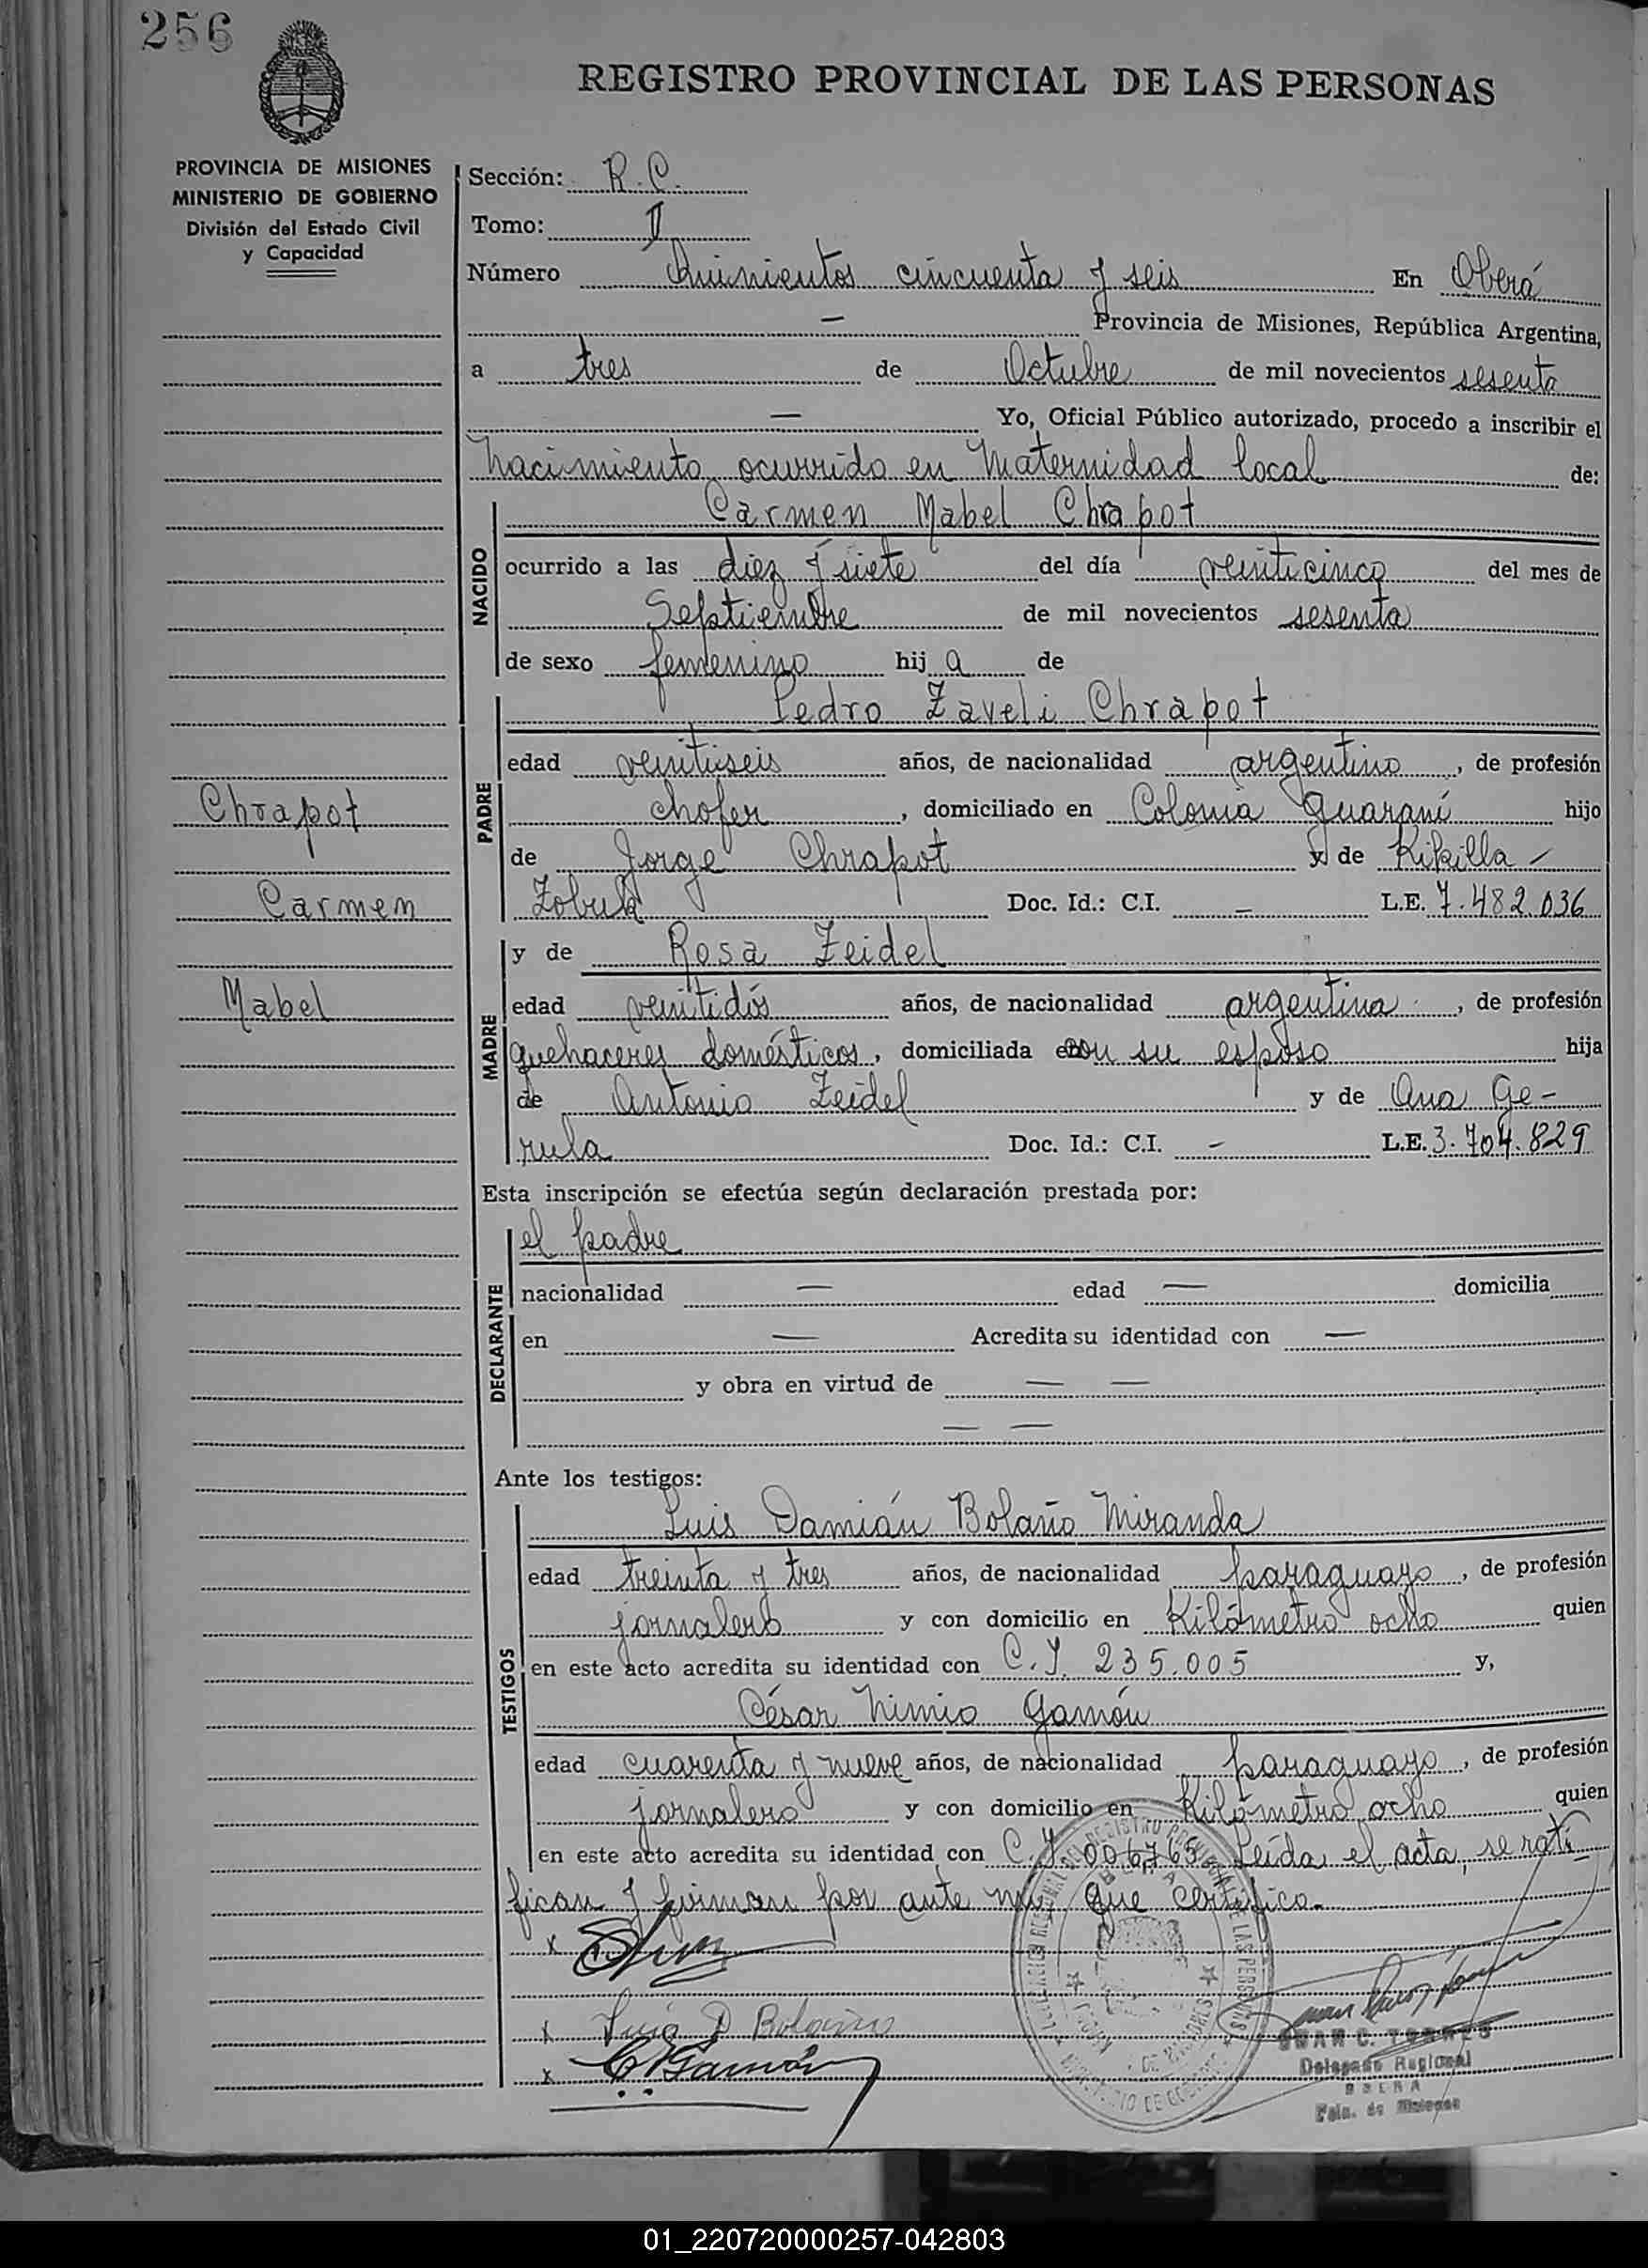 256
REGISTRO PROVINCIAL DE LAS PERSONAS
PROVINCIA DE MISIONES
MINISTERIO DE GOBIERNO
División del Estado Civil
y Capacidad
Sección: R. C.
Tomo: II
Número Quinientos cincuenta y seis En Oberá
— Provincia de Misiones, República Argentina,
a tres de Octubre de mil novecientos sesenta
— Yo, Oficial Público autorizado, procedo a inscribir el
nacimiento ocurrido en Maternidad local de:
NACIDO
Carmen Mabel Chrapot
ocurrido a las diez y siete del día veinticinco del mes de
Septiembre de mil novecientos sesenta
de sexo femenino hij a de
PADRE
Pedro Zaveli Chrapot
edad veintiseis años, de nacionalidad argentino, de profesión
chofer, domiciliado en Colonia Guaraní hijo
de Jorge Chrapot y de Kikilla -
Zobuk Doc. Id.: C.I. — L.E. 7.482.036
Chrapot
Carmen
Mabel
MADRE
y de Rosa Zeidel
edad veintidós años, de nacionalidad argentina, de profesión
quehaceres domésticos, domiciliada con su esposo hija
de Antonio Zeidel y de Ana Ge-
rula Doc. Id.: C.I. — L.E. 3.704.829
Esta inscripción se efectúa según declaración prestada por:
DECLARANTE
el padre
nacionalidad — edad — domicilia
en — Acredita su identidad con —
y obra en virtud de — —
— —
Ante los testigos:
TESTIGOS
Luis Damián Bolaño Miranda
edad treinta y tres años, de nacionalidad paraguayo, de profesión
jornalero y con domicilio en Kilómetro ocho quien
en este acto acredita su identidad con C.I. 235.005 y,
César Nimio Gamón
edad cuarenta y nueve años, de nacionalidad paraguayo, de profesión
jornalero y con domicilio en Kilómetro ocho quien
en este acto acredita su identidad con C.I. 006.765 Leída el acta, se rati-
fican y firman por ante mí, que certifico.
x
x Luis D Bolaño
x C Gamón
JUAN C. TORRES
Delegado Regional
OBERA
Pcia. de Misiones
01_220720000257-042803